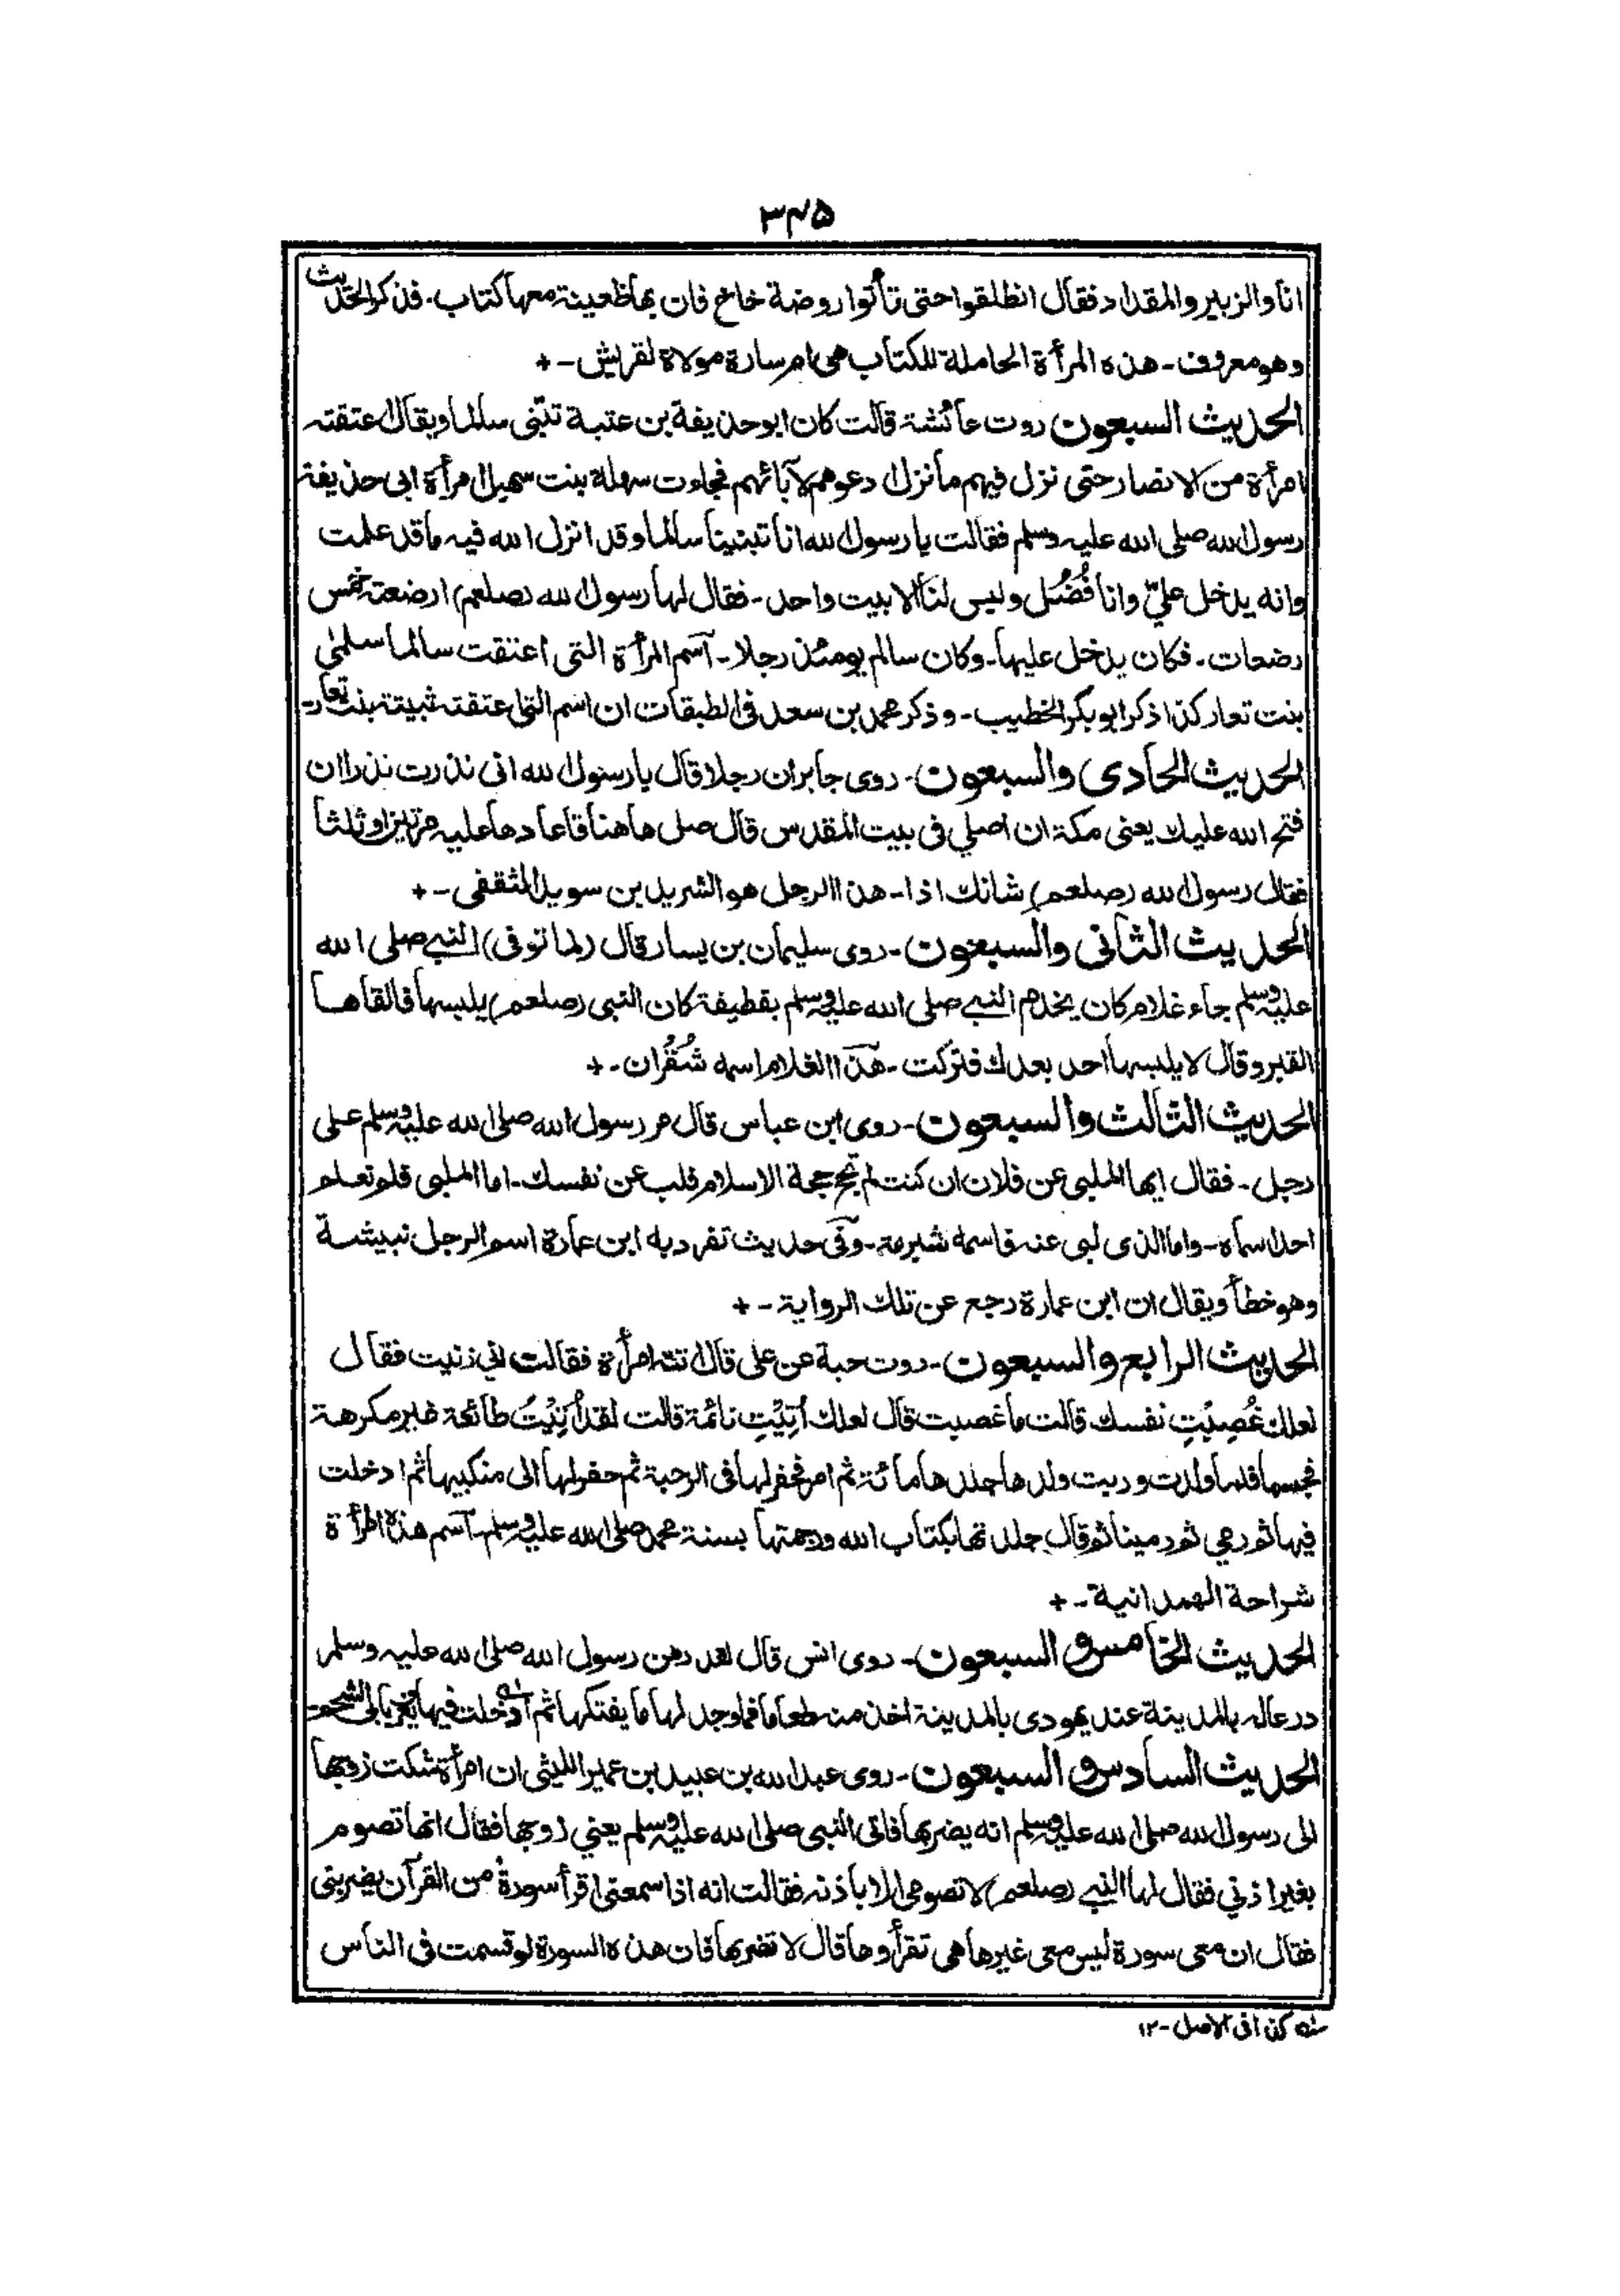 ۳۴۵
انا والزبير والمقداد فقال انطلقوا حتى تأتوا روضة خاخ فان بها ظعينة معها كتاب ـ فذكر الحديث
وهو معروف ـ هذه المرأة الحاملة للكتاب هى ام سارة مولاة لقريش ـ +
الحديث السبعون روت عائشة قالت كان ابو حذيفة بن عتبة تبنّى سالما ويقال اعتقته
امرأة من الانصار حتى نزل فيهم ما نزل دعوهم لآبائهم فجاءت سهلة بنت سهيل امرأة ابى حذيفة
رسول الله صلى الله عليه وسلم فقالت يا رسول الله انا تبنينا سالما وقد انزل الله فيه ما قد علمت
وانه يدخل علىّ وانا فُضُل وليس لنا الا بيت واحد ـ فقال لها رسول الله (صلعم) ارضعته خمس
رضعات ـ فكان يدخل عليها ـ وكان سالم يومئذ رجلا ـ آسم المرأة التى اعتقت سالما سلمى
بنت تعار كذا ذكر ابو بكر الخطيب ـ وذكر محمد بن سعد فى الطبقات ان اسم التى اعتقته ثبيتة بنت تعار ـ
الحديث الحادى والسبعون ـ روى جابر ان رجلا قال يا رسول الله انى نذرت نذرا ان
فتح الله عليك يعنى مكة ان اصلي فى بيت المقدس قال صل هاهنا فاعادها عليه مرتين او ثلثا
فقال رسول الله (صلعم) شانك اذا ـ هذا الرجل هو الشريد بن سويد الثقفى ـ +
الحديث الثانى والسبعون ـ روى سليمان بن يسار قال (لما توفى) النبي صلى الله
عليه وسلم جاء غلام كان يخدم النبي صلى الله عليه وسلم بقطيفة كان النبى (صلعم) يلبسها فالقاها
القبر وقال لا يلبسها احد بعدك فتركت ـ هذا الغلام اسمه شُقُران ـ +
الحديث الثالث والسبعون ـ روى ابن عباس قال مر رسول الله صلى الله عليه وسلم على
رجل ـ فقال ايها الملبى عن فلان ان كنت لم تحج حجة الاسلام فلب عن نفسك ـ اما الملبى فلم تعلم
احدا سماه ـ واما الذى لبى عنه فاسمه شبرمة ـ وفى حديث تفرد به ابن عمارة اسم الرجل نبيشة
وهو خطأ ويقال ان ابن عمارة رجع عن تلك الرواية ـ +
الحديث الرابع والسبعون ـ روت حبة عن على قال اتته امرأة فقالت انى زنيت فقال
لعلك غُصِبْتِ نفسك قالت ما غصبت قال لعلك أُتِيْتِ نائمة قالت لقد أُتِيْتُ طائعة غير مكرهة
فحبسها فلما ولدت وربت ولدها جلدها مائة ثم امر فحفر لها فى الرحبة ثم حفر لها الى منكبيها ثم ادخلت
فيها ثم رمي ثم رمينا ثم قال جلدتها بكتاب الله ورجمتها بسنة محمد صلى الله عليه وسلم ـ آسم هذه المرأة
شراحة الهمدانية ـ +
الحديث الخامس و السبعون ـ روى انس قال لقد رهن رسول الله صلى الله عليه وسلم
درعا له بالمدينة عند يهودى بالمدينة اخذ منه طعاما فما وجد لها ما يفتكها ثم ادخلت فيها بابى الشحم ـ
الحديث السادس و السبعون ـ روى عبد الله بن عبيد بن عمير الليثى ان امرأة شكت زوجها
الى رسول الله صلى الله عليه وسلم انه يضربها فاتى النبى صلى الله عليه وسلم يعني زوجها فقال انها تصوم
بغير اذني فقال لها النبي (صلعم) لا تصومى الا باذنه فقالت انه اذا سمعنى اقرأ سورة من القرآن يضربنى
فقال ان معى سورة ليس معى غيرها هى تقرأوها قال لا تضربها فان هذه السورة لو قسمت فى الناس
كذا فى الاصل ـ ۱۲